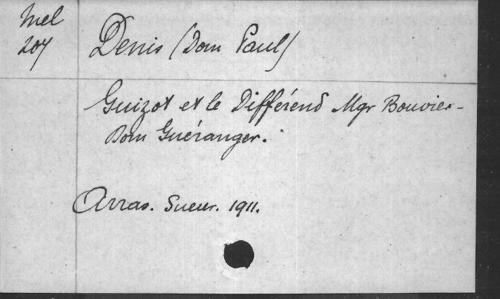 Mel
207
Denis (Dom Paul)
Guizot et le Différend Mgr Bouvier-
Dom Guéranger.
Arras. Sueur. 1911.